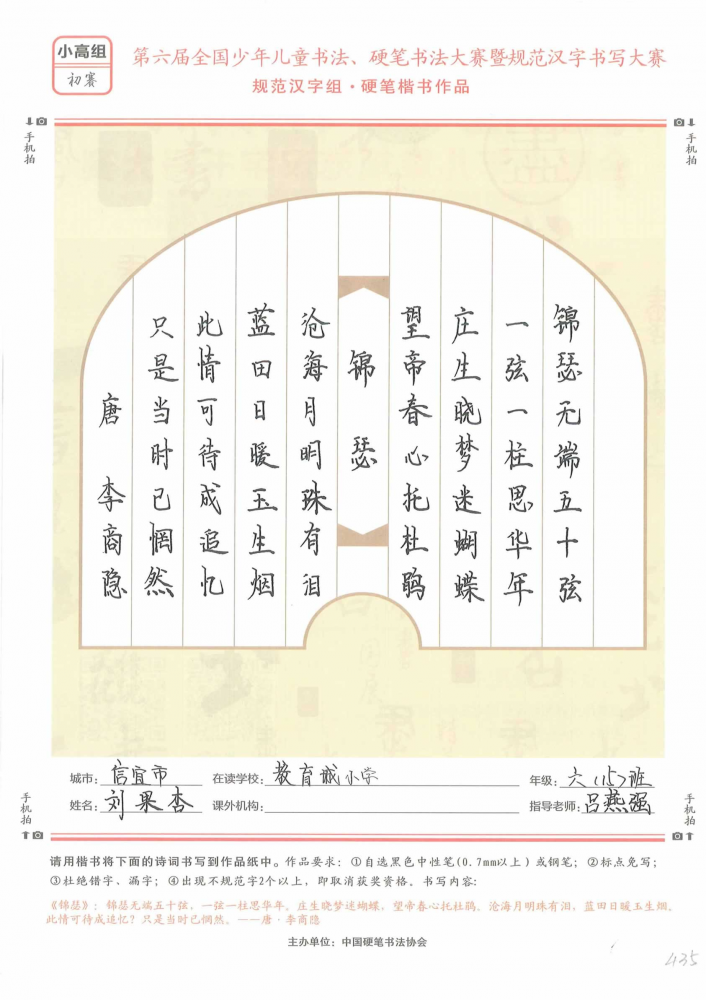 小高组
初赛
第六届全国少年儿童书法、硬笔书法大赛暨规范汉字书写大赛
规范汉字组·硬笔楷书作品
手机拍
手机拍
锦瑟无端五十弦
一弦一柱思华年
庄生晓梦迷蝴蝶
望帝春心托杜鹃
锦瑟
沧海月明珠有泪
蓝田日暖玉生烟
此情可待成追忆
只是当时已惘然
唐 李商隐
城市：信宜市 在读学校：教育城小学 年级：六（15）班
姓名：刘果杏 课外机构： 指导老师：吕燕强
手机拍
手机拍
请用楷书将下面的诗词书写到作品纸中。作品要求：①自选黑色中性笔(0.7mm以上)或钢笔；②标点免写；
③杜绝错字、漏字；④出现不规范字2个以上，即取消获奖资格。书写内容：
《锦瑟》：锦瑟无端五十弦，一弦一柱思华年。庄生晓梦迷蝴蝶，望帝春心托杜鹃。沧海月明珠有泪，蓝田日暖玉生烟。
此情可待成追忆？只是当时已惘然。——唐·李商隐
主办单位：中国硬笔书法协会
435